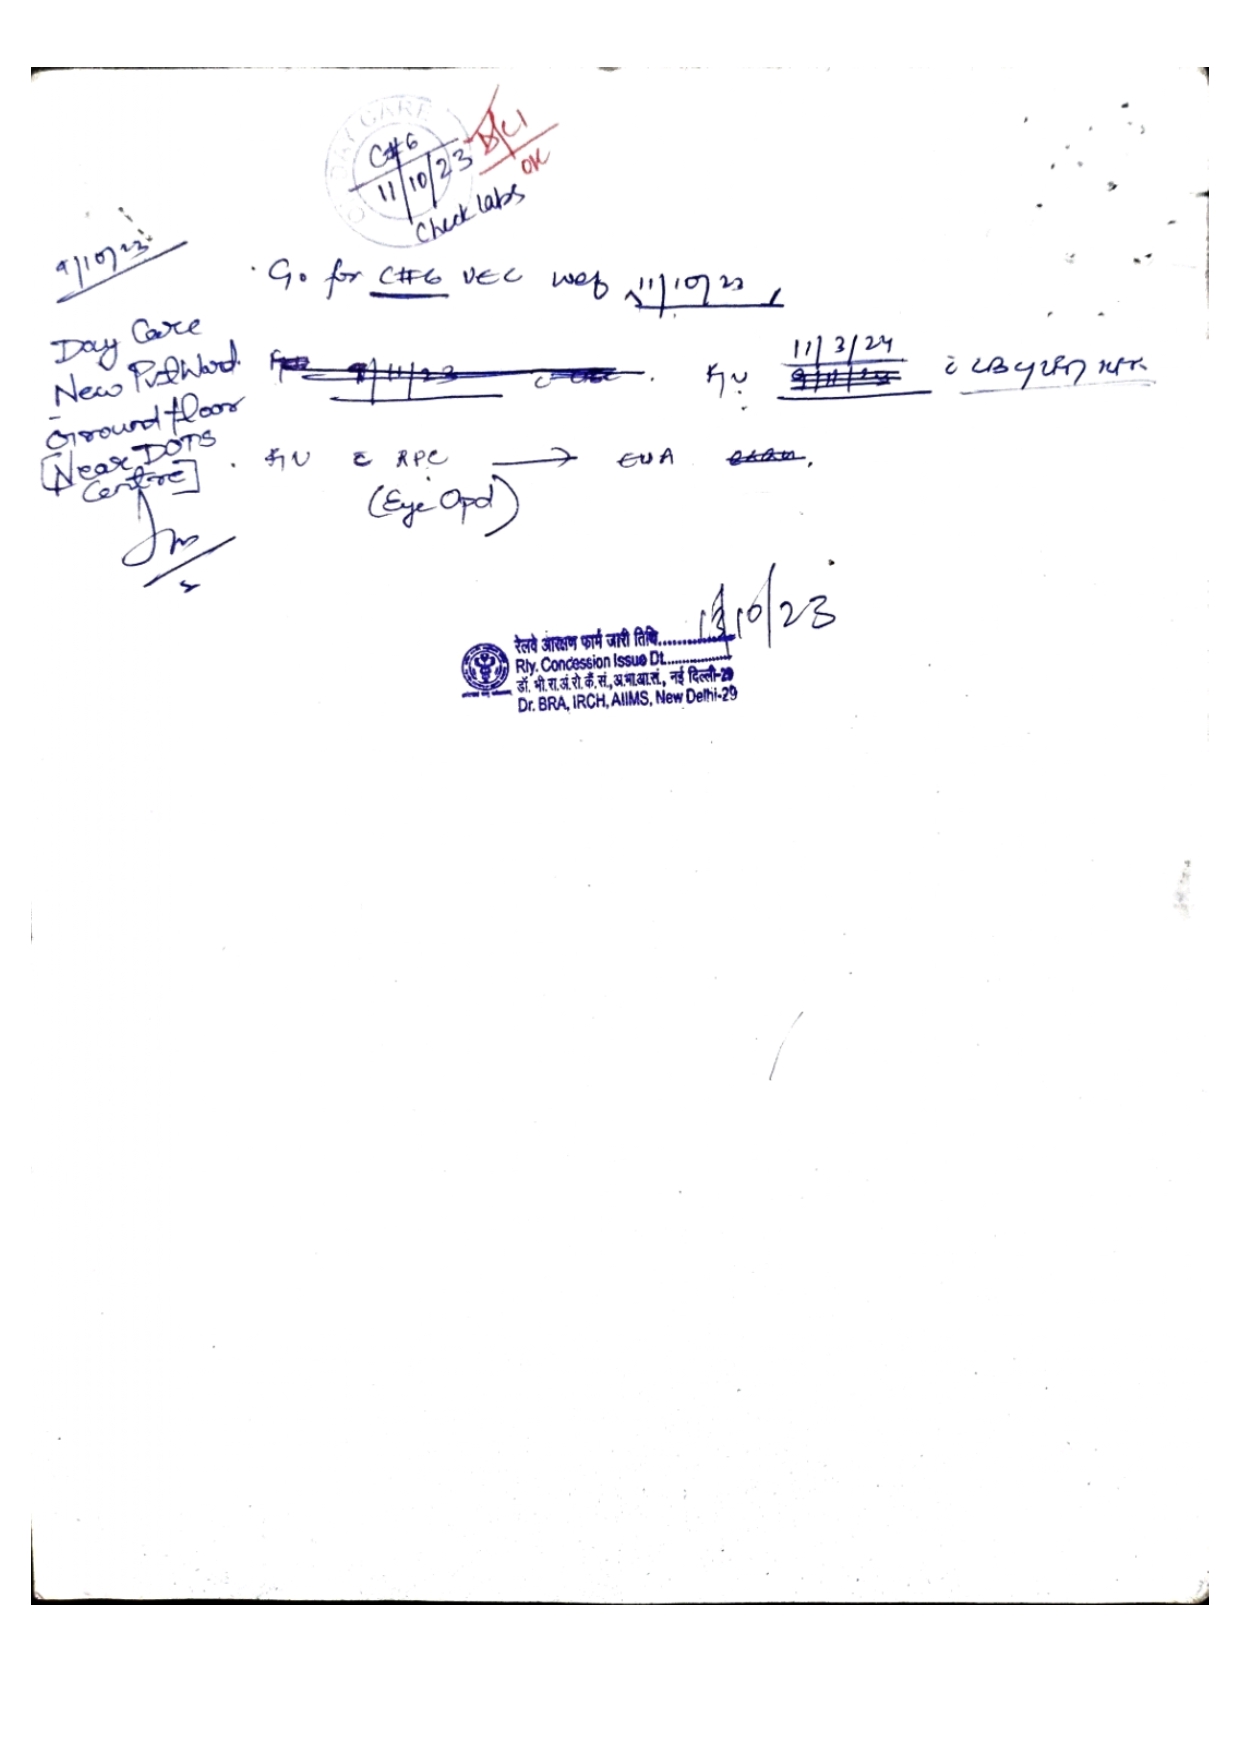 DAY CARE
C#6
11/10/23
D1C1
OK
Check labs
9/10/23
. Go for C#6 VEC wef 11/10/23
Day Care
New Pvt Ward
Ground floor
[Near DOTS
Centre]
9/11/23 c
11/3/24
. F/U c RPC → EUA
(Eye Opd)
13/10/23
रेलवे आरक्षण फार्म जारी तिथि..............
Rly. Concession Issue Dt................
डॉ. भी.रा.अं.रो.कैं.सं.,अ.भा.आ.सं., नई दिल्ली-29
Dr. BRA, IRCH, AIIMS, New Delhi-29